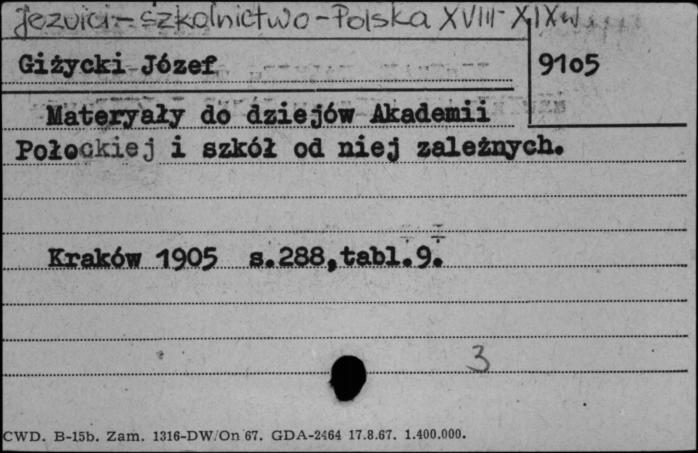 Jezuici - szkolnictwo - Polska XVIII-XIXw.
Giżycki Józef
9105
Materyały do dziejów Akademii
Połockiej i szkół od niej zależnych.
Kraków 1905 s.288,tabl.9.
3
CWD. B-15b. Zam. 1316-DW/On 67. GDA-2464 17.8.67. 1.400.000.